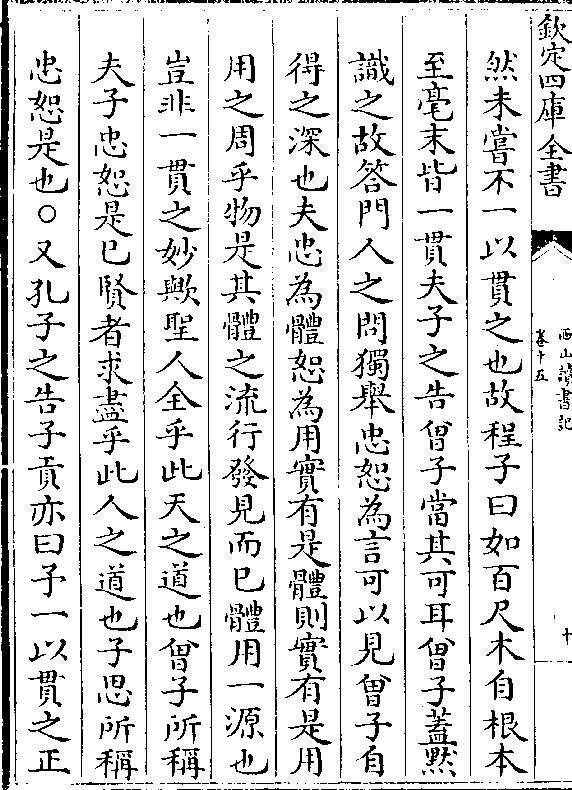 欽定四庫全書
西山讀書記
卷十五
十
然未嘗不一以貫之也故程子曰如百尺木自根本
至毫末皆一貫夫子之告曾子當其可耳曾子蓋黙
識之故答門人之問獨舉忠恕為言可以見曾子自
得之深也夫忠為體恕為用實有是體則實有是用
用之周乎物是其體之流行發見而已體用一源也
豈非一貫之妙歟聖人全乎此天之道也曾子所稱
夫子忠恕是已賢者求盡乎此人之道也子思所稱
忠恕是也○又孔子之告子貢亦曰予一以貫之正